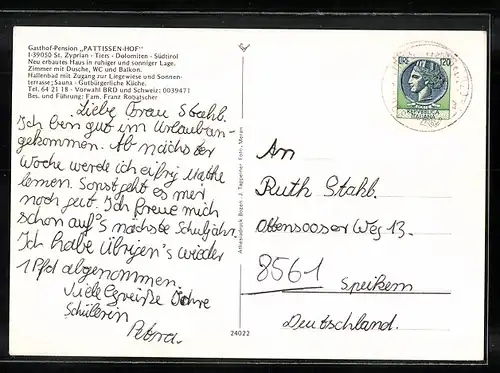 Gasthof-Pension „PATTISSEN-HOF"
I-39050 St. Zyprian - Tiers - Dolomiten - Südtirol
Neu erbautes Haus in ruhiger und sonniger Lage.
Zimmer mit Dusche, WC und Balkon.
Hallenbad mit Zugang zur Liegewiese und Sonnen-
terrasse; Sauna - Gutbürgerliche Küche.
Tel. 64 21 18 - Vorwahl BRD und Schweiz: 0039471
Bes. und Führung: Fam. Franz Robatscher
Liebe Frau Stahl.
Ich bin gut im Urlauban-
gekommen. Ab nächster
Woche werde ich eifrig Mathe
lernen. Sonst geht es mir
noch gut. Ich freue mich
schon auf's nächste Schuljahr.
Ich habe übrigen's wieder
1 Pfd abgenommen.
Viele Grüße Ihre
Schülerin
Petra.
Athesiadruck Bozen - J. Tappeiner Foto, Meran
24022
LIRE 120
REPUBBLICA
ITALIANA
An
Ruth Stahl.
Ottensooser Weg 13.
8561
Speikern
Deutschland.